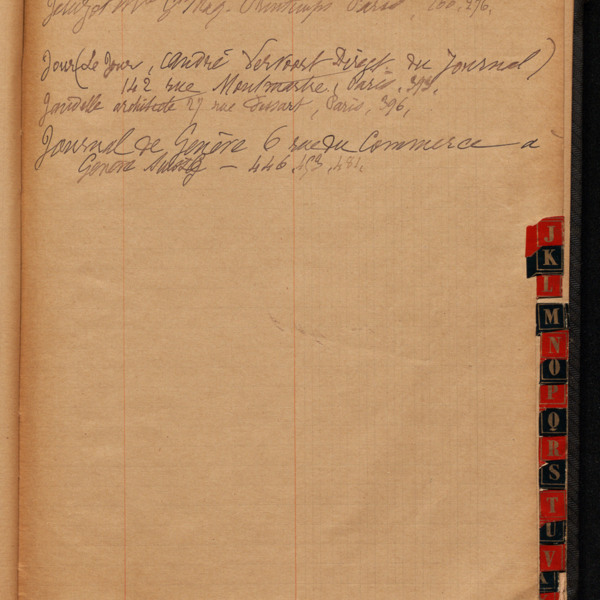 Gd Mag. Printemps Paris, 166, 276,
Jour (Le Jour, André Vervoort Direct. du Journal)
142 rue Montmartre, Paris, 393,
architecte 27 rue Paris, 396,
Journal de Genève 6 rue du Commerce a
Genève — 446, 453, 481,
J
K
L
M
N
O
P
Q
R
S
T
U
V